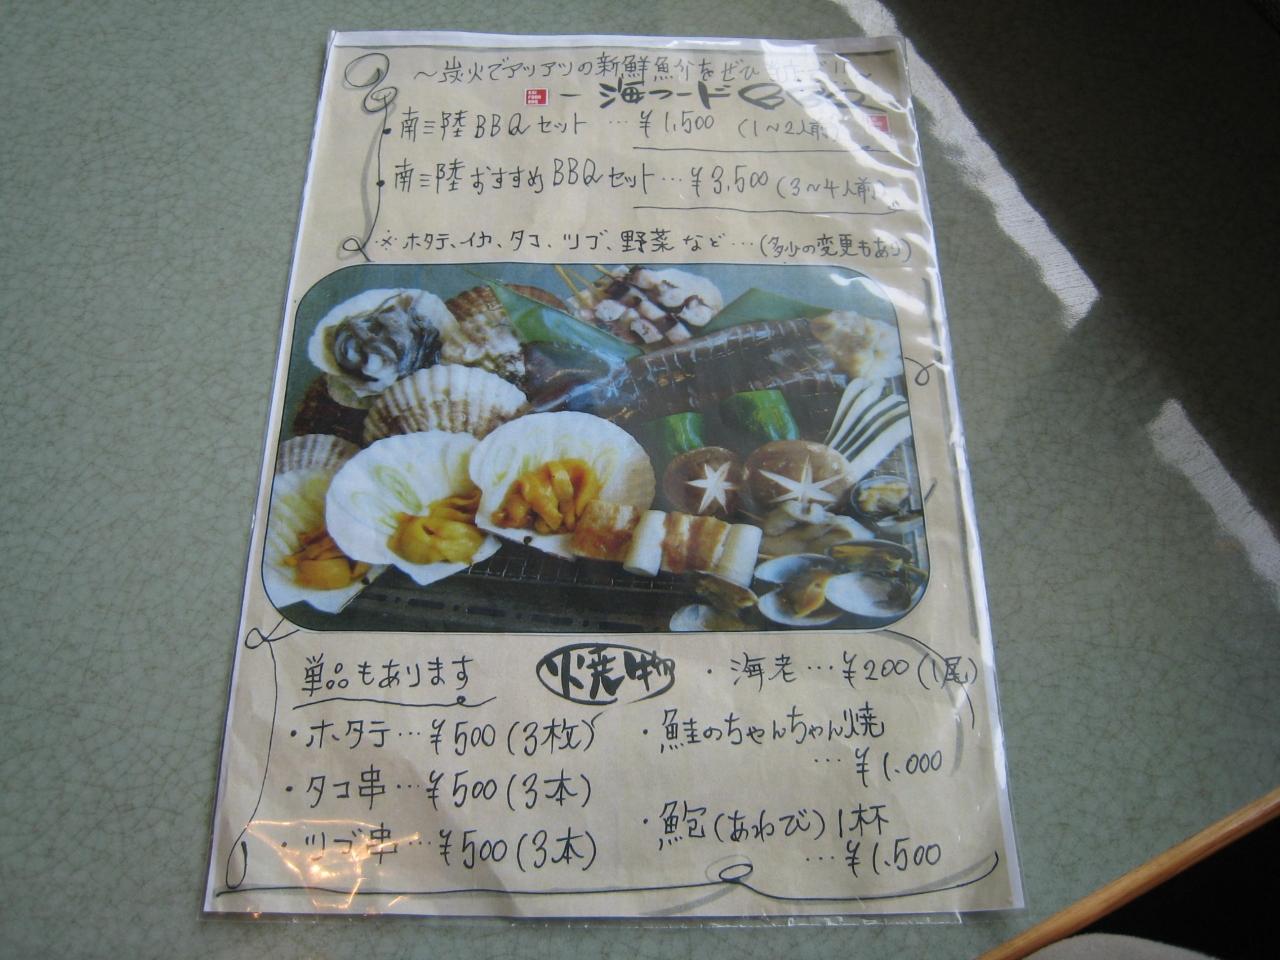 ～炭火でアツアツの新鮮魚介をぜひ
海フードBBQ
・南三陸BBQセット …¥1,500 (1～2人前)
・南三陸おすすめBBQセット…¥3,500(3～4人前)
※ホタテ、イカ、タコ、ツブ、野菜など…(多少の変更もあり)
単品もあります
焼物
・海老…¥200(1尾)
・ホタテ…¥500(3枚)
・鮭のちゃんちゃん焼
…¥1.000
・タコ串…¥500(3本)
・ツブ串…¥500(3本)
・鮑(あわび)1杯
…¥1.500